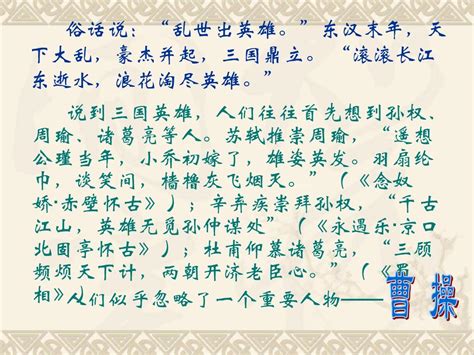 俗话说：“乱世出英雄。”东汉末年，天
下大乱，豪杰并起，三国鼎立。“滚滚长江
东逝水，浪花淘尽英雄。”
说到三国英雄，人们往往首先想到孙权、
周瑜、诸葛亮等人。苏轼推崇周瑜，“遥想
公瑾当年，小乔初嫁了，雄姿英发。羽扇纶
巾，谈笑间，樯橹灰飞烟灭。”（《念奴
娇·赤壁怀古》）；辛弃疾崇拜孙权，“千古
江山，英雄无觅孙仲谋处”（《永遇乐·京口
北固亭怀古》）；杜甫仰慕诸葛亮，“三顾
频烦天下计，两朝开济老臣心。”（《蜀
相》）
人们似乎忽略了一个重要人物——
曹操